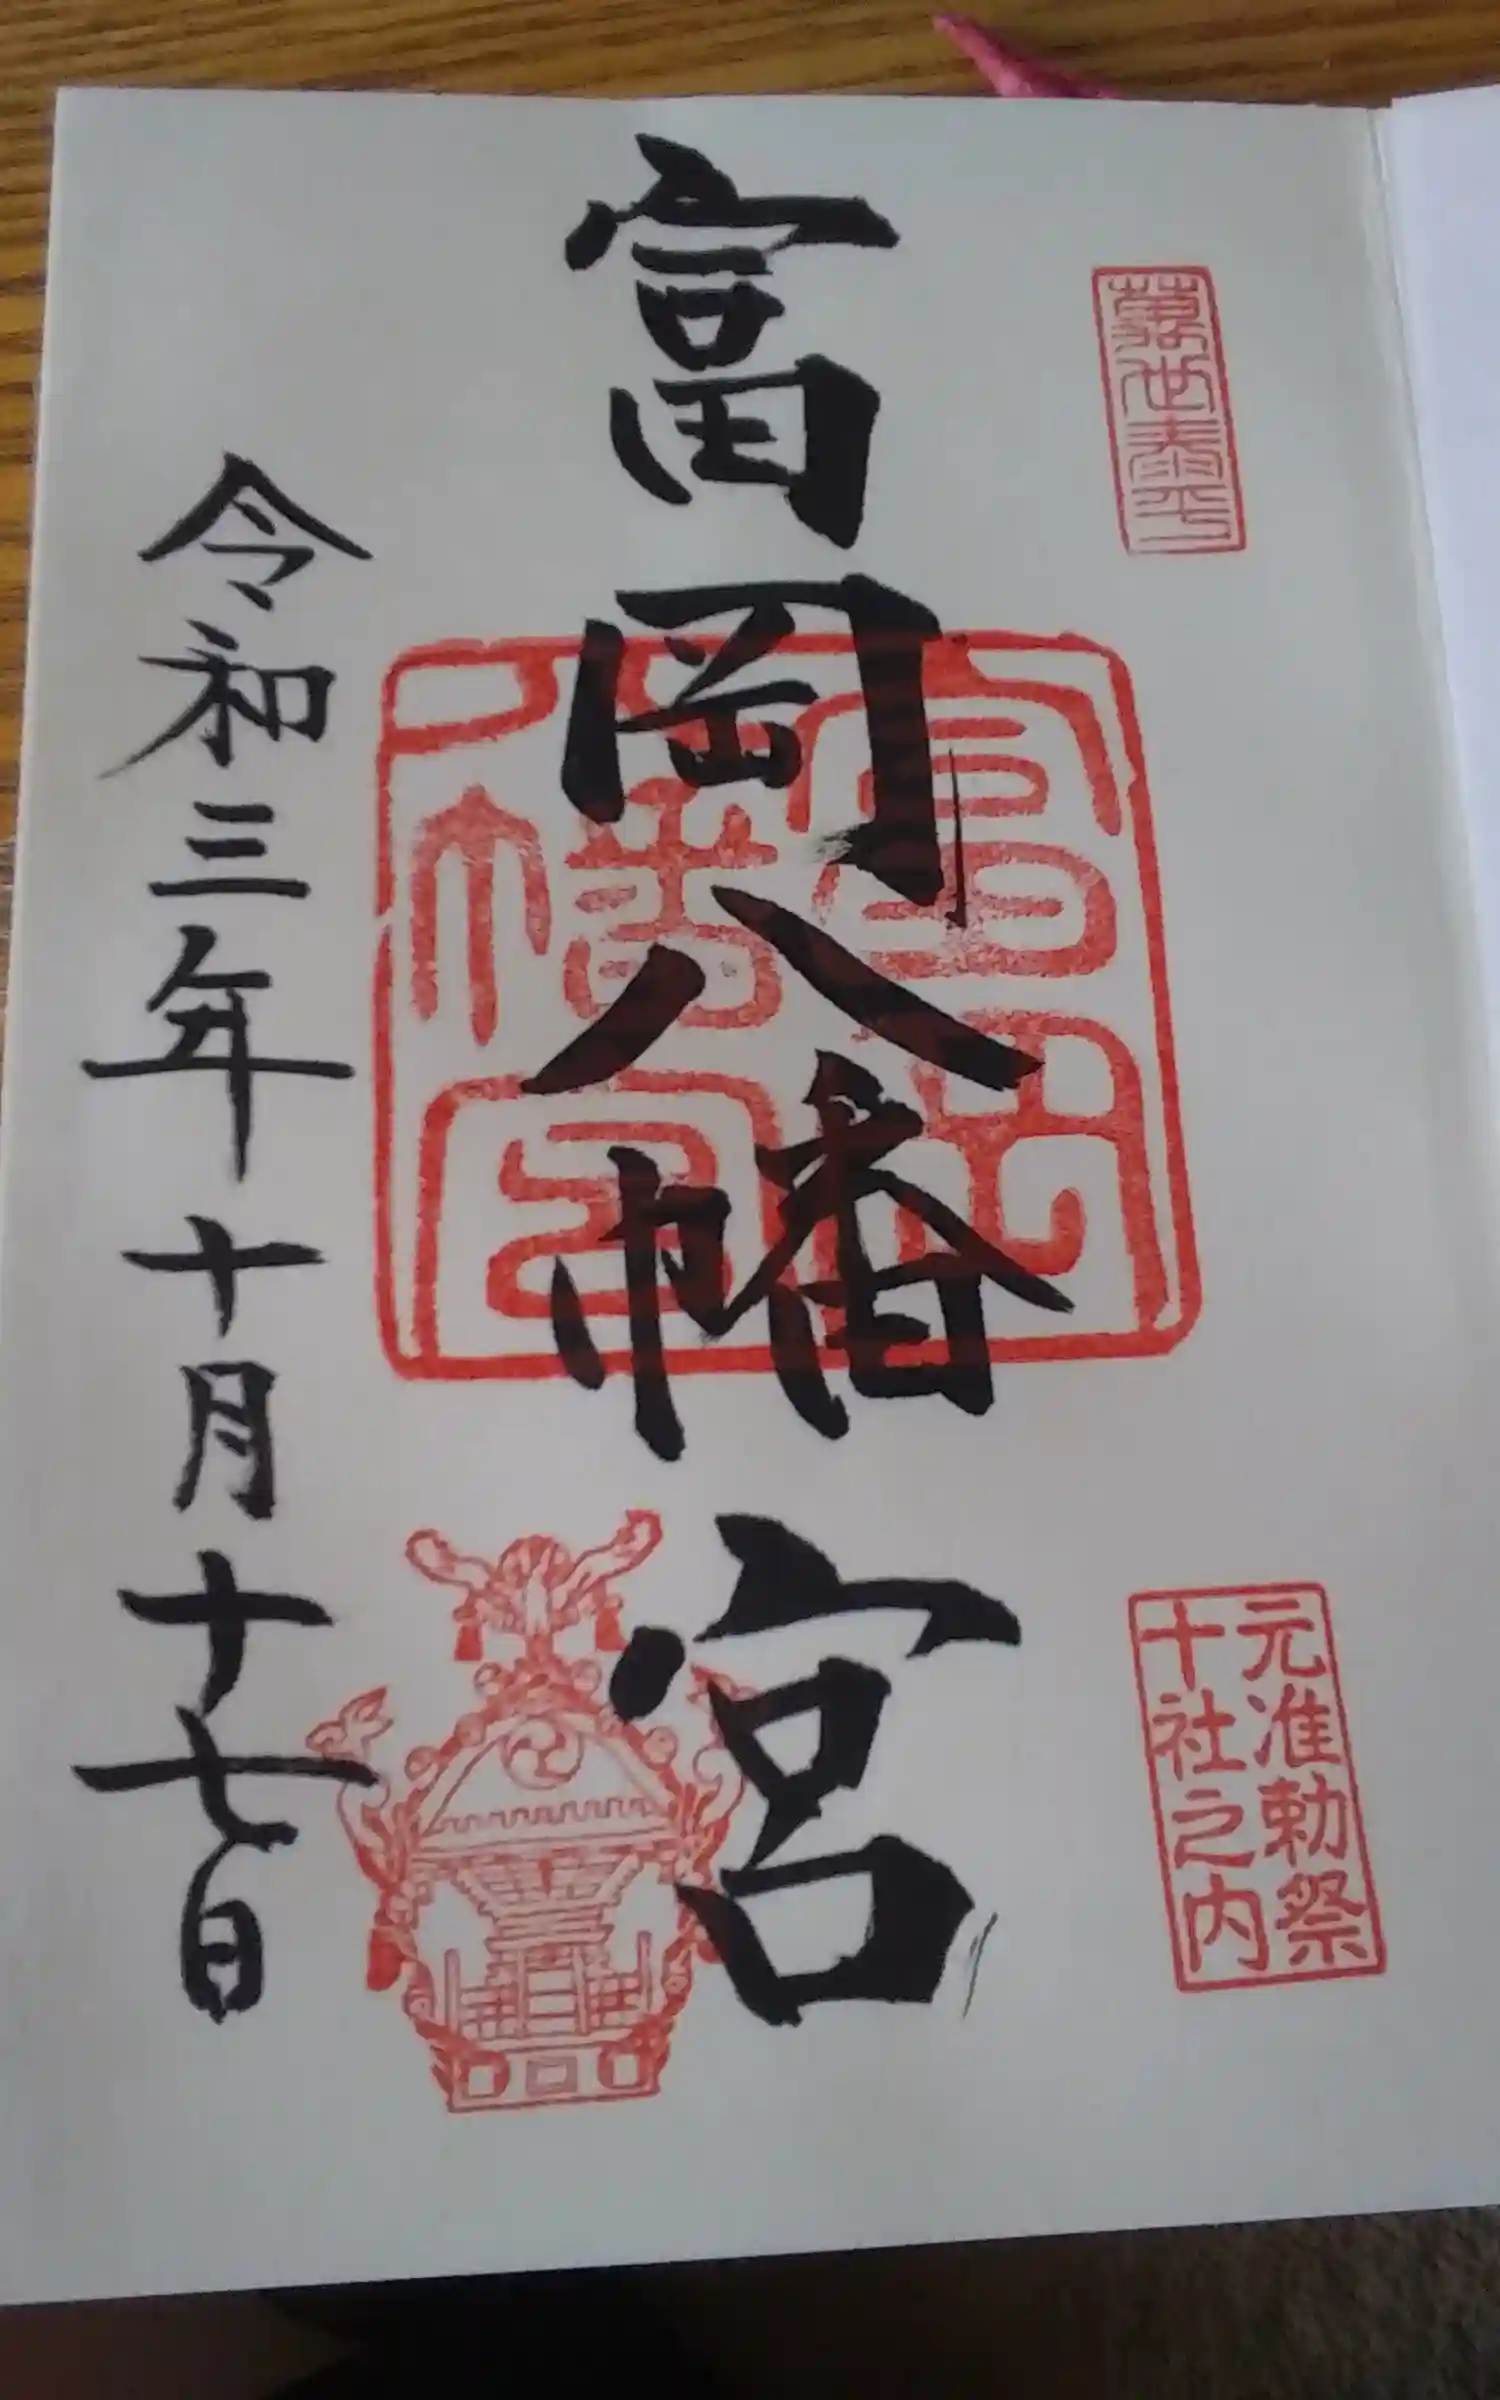 萬世泰平
元准勅祭
十社之内
富岡八幡宮
富岡
八幡宮
令和三年十月十七日